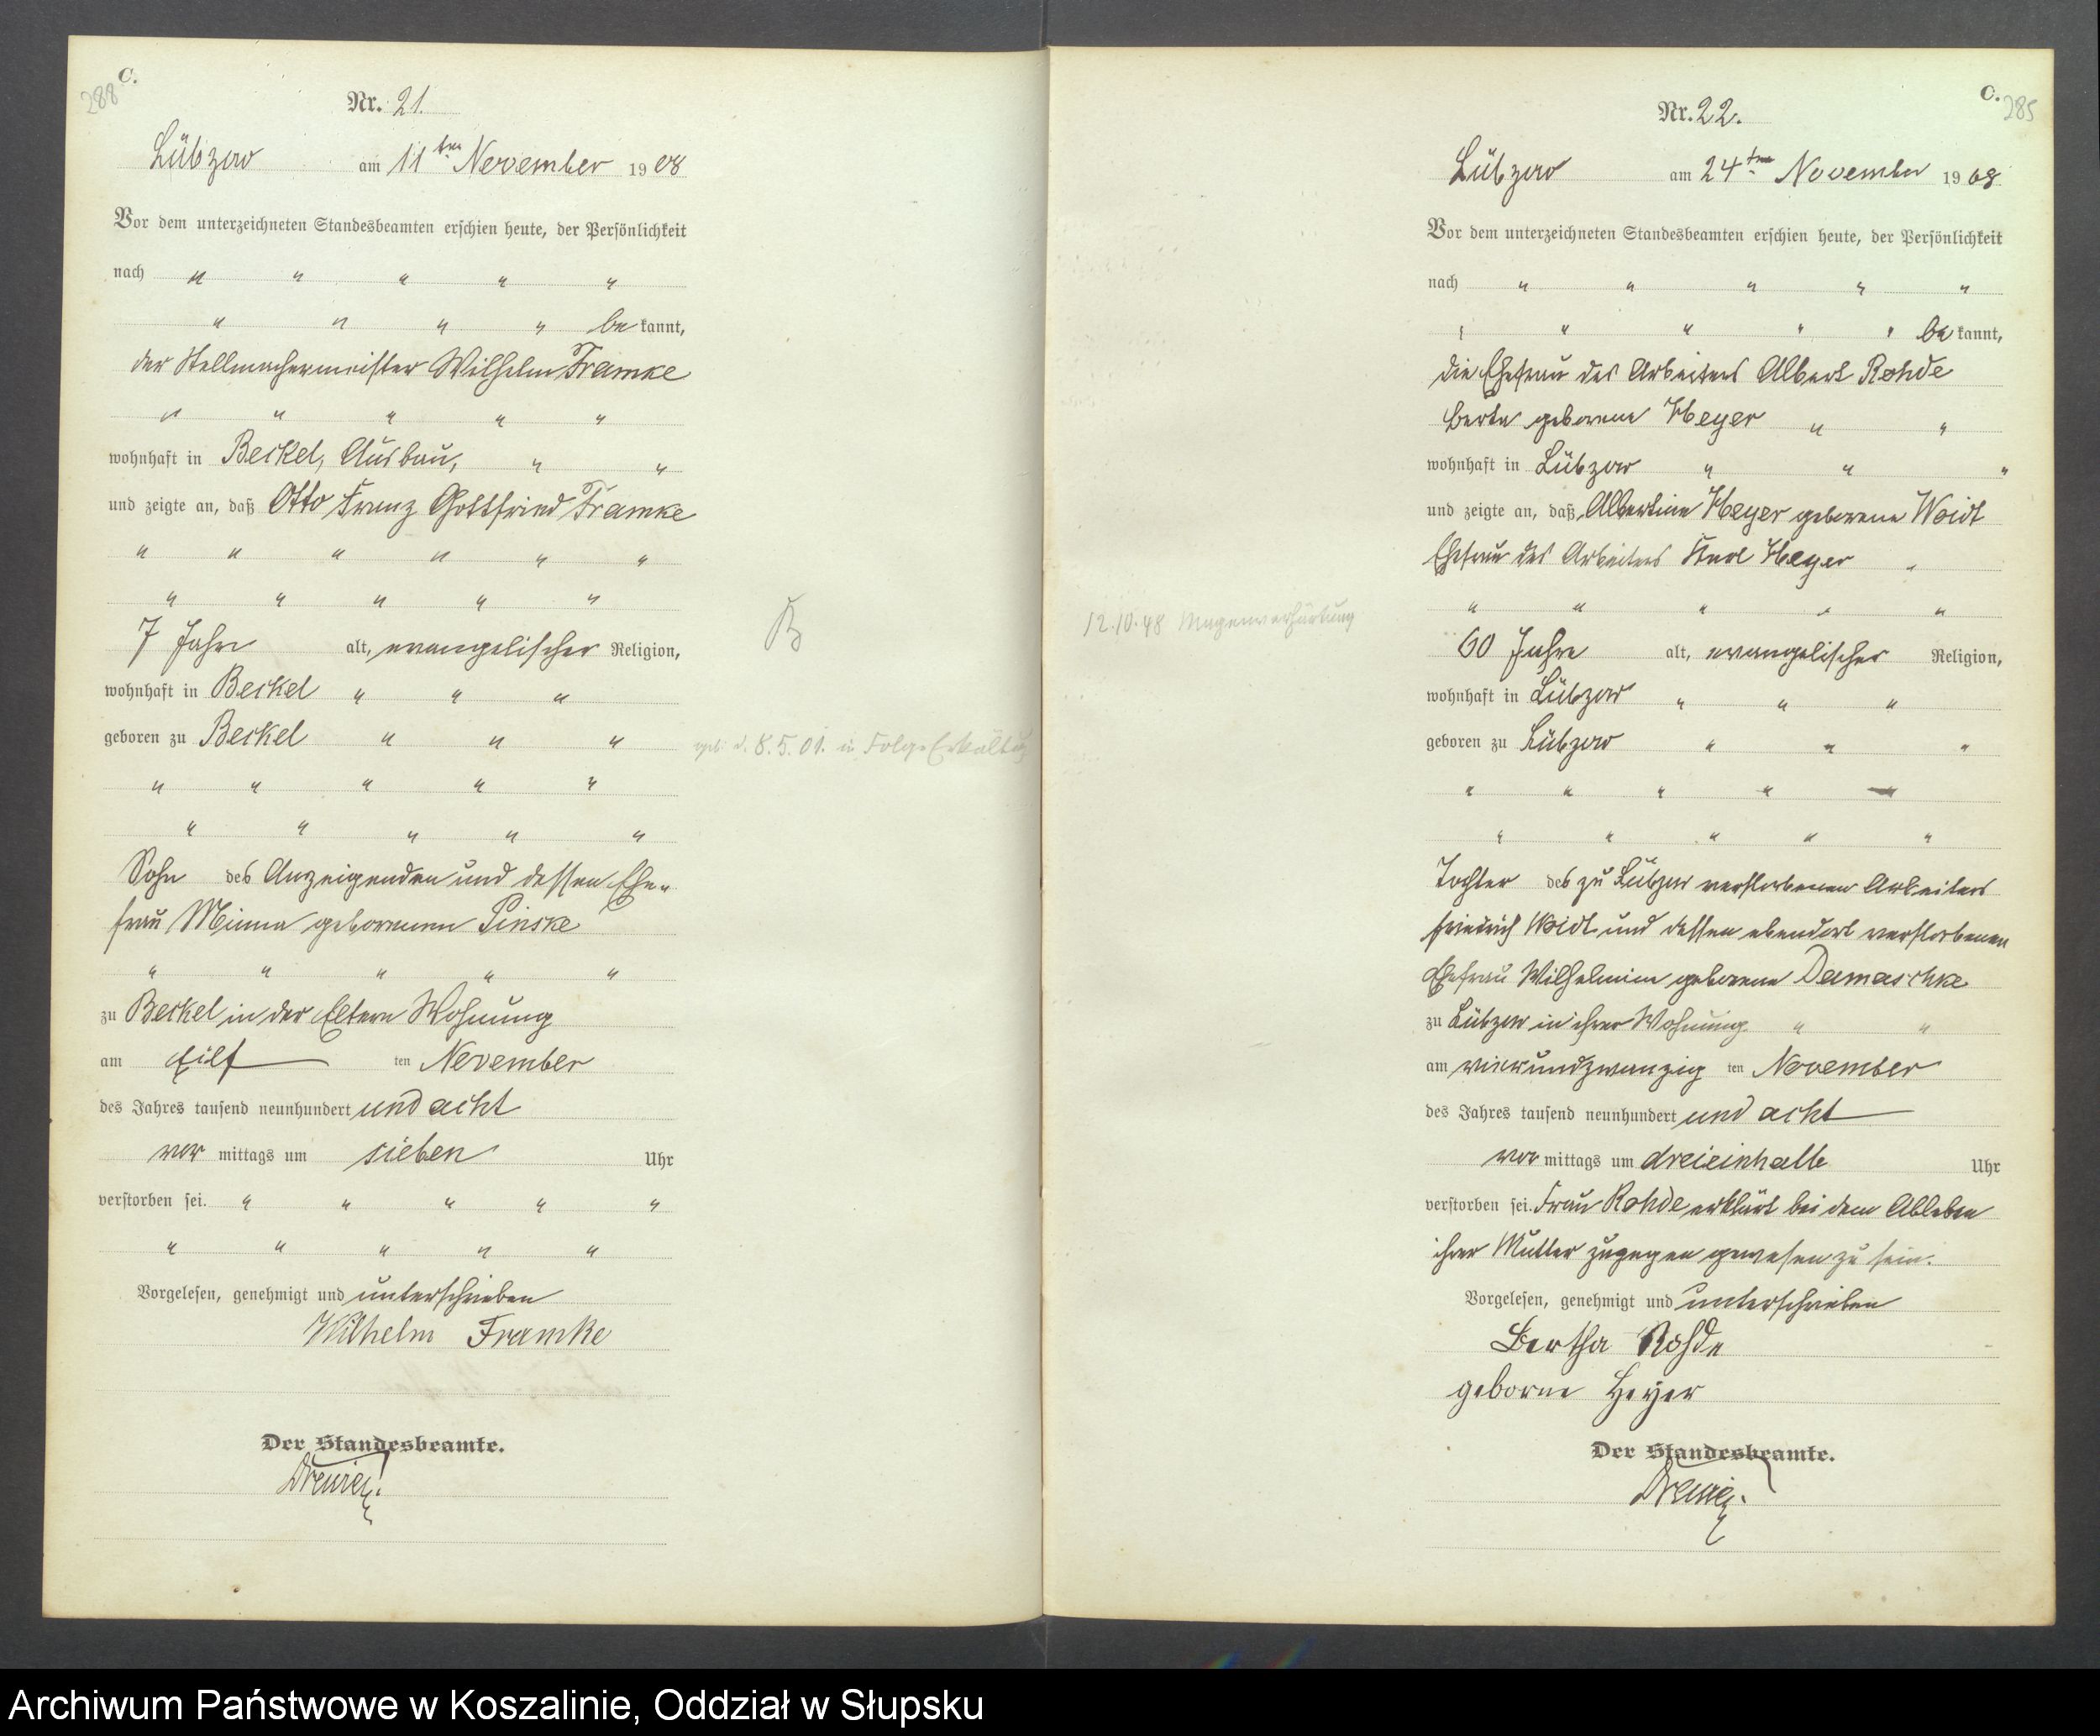 C.
288
Nr. 21.
Lübzow am 11ten November 1908
Vor dem unterzeichneten Standesbeamten erschien heute, der Persönlichkeit
nach " " " " "
" " " " bekannt,
der Stellmachermeister Wilhelm Framke
" " " " "
wohnhaft in Beckel, Ausbau, " "
und zeigte an, daß Otto Franz Gottfried Framke
" " " " " "
" " " " "
7 Jahre alt, evangelischer Religion,
wohnhaft in Beckel " " "
geboren zu Beckel " " "
geb. d. 8.5.01. in Folge Erkältg
" " " " "
" " " " "
Sohn des Anzeigenden und dessen Ehe-
frau Minna geborenen Pinske
" " " " "
zu Beckel in der Eltern Wohnung
am Eilf ten November
des Jahres tausend neunhundert und acht
vor mittags um sieben Uhr
verstorben sei. " " " " "
" " " " "
Vorgelesen, genehmigt und unterschrieben
Wilhelm Framke
Der Standesbeamte.
C.
285
Nr. 22.
Lübzow am 24ten November 1908
Vor dem unterzeichneten Standesbeamten erschien heute, der Persönlichkeit
nach " " " " "
" " " " " bekannt,
die Ehefrau des Arbeiters Albert Rohde
Berta geborene Heyer " "
wohnhaft in Lübzow " " "
und zeigte an, daß Albertine Heyer geborene Woidt
Ehefrau des Arbeiters Karl Heyer "
" " " " "
12.10.48 Magenverhärtung
60 Jahre alt, evangelischer Religion,
wohnhaft in Lübzow " " "
geboren zu Lübzow " " "
" " " " "
" " " " "
Tochter des zu Lübzow verstorbenen Arbeiters
Friedrich Woidt und dessen ebendort verstorbenen
Ehefrau Wilhelmine geborene Damaschke
zu Lübzow in ihrer Wohnung " "
am vierundzwanzig ten November
des Jahres tausend neunhundert und acht
vor mittags um dreieinhalb Uhr
verstorben sei. Frau Rohde erklärt bei dem Ableben
ihrer Mutter zugegen gewesen zu sein.
Vorgelesen, genehmigt und unterschrieben
Bertha Rohde
geborne Heyer
Der Standesbeamte.
Archiwum Państwowe w Koszalinie, Oddział w Słupsku